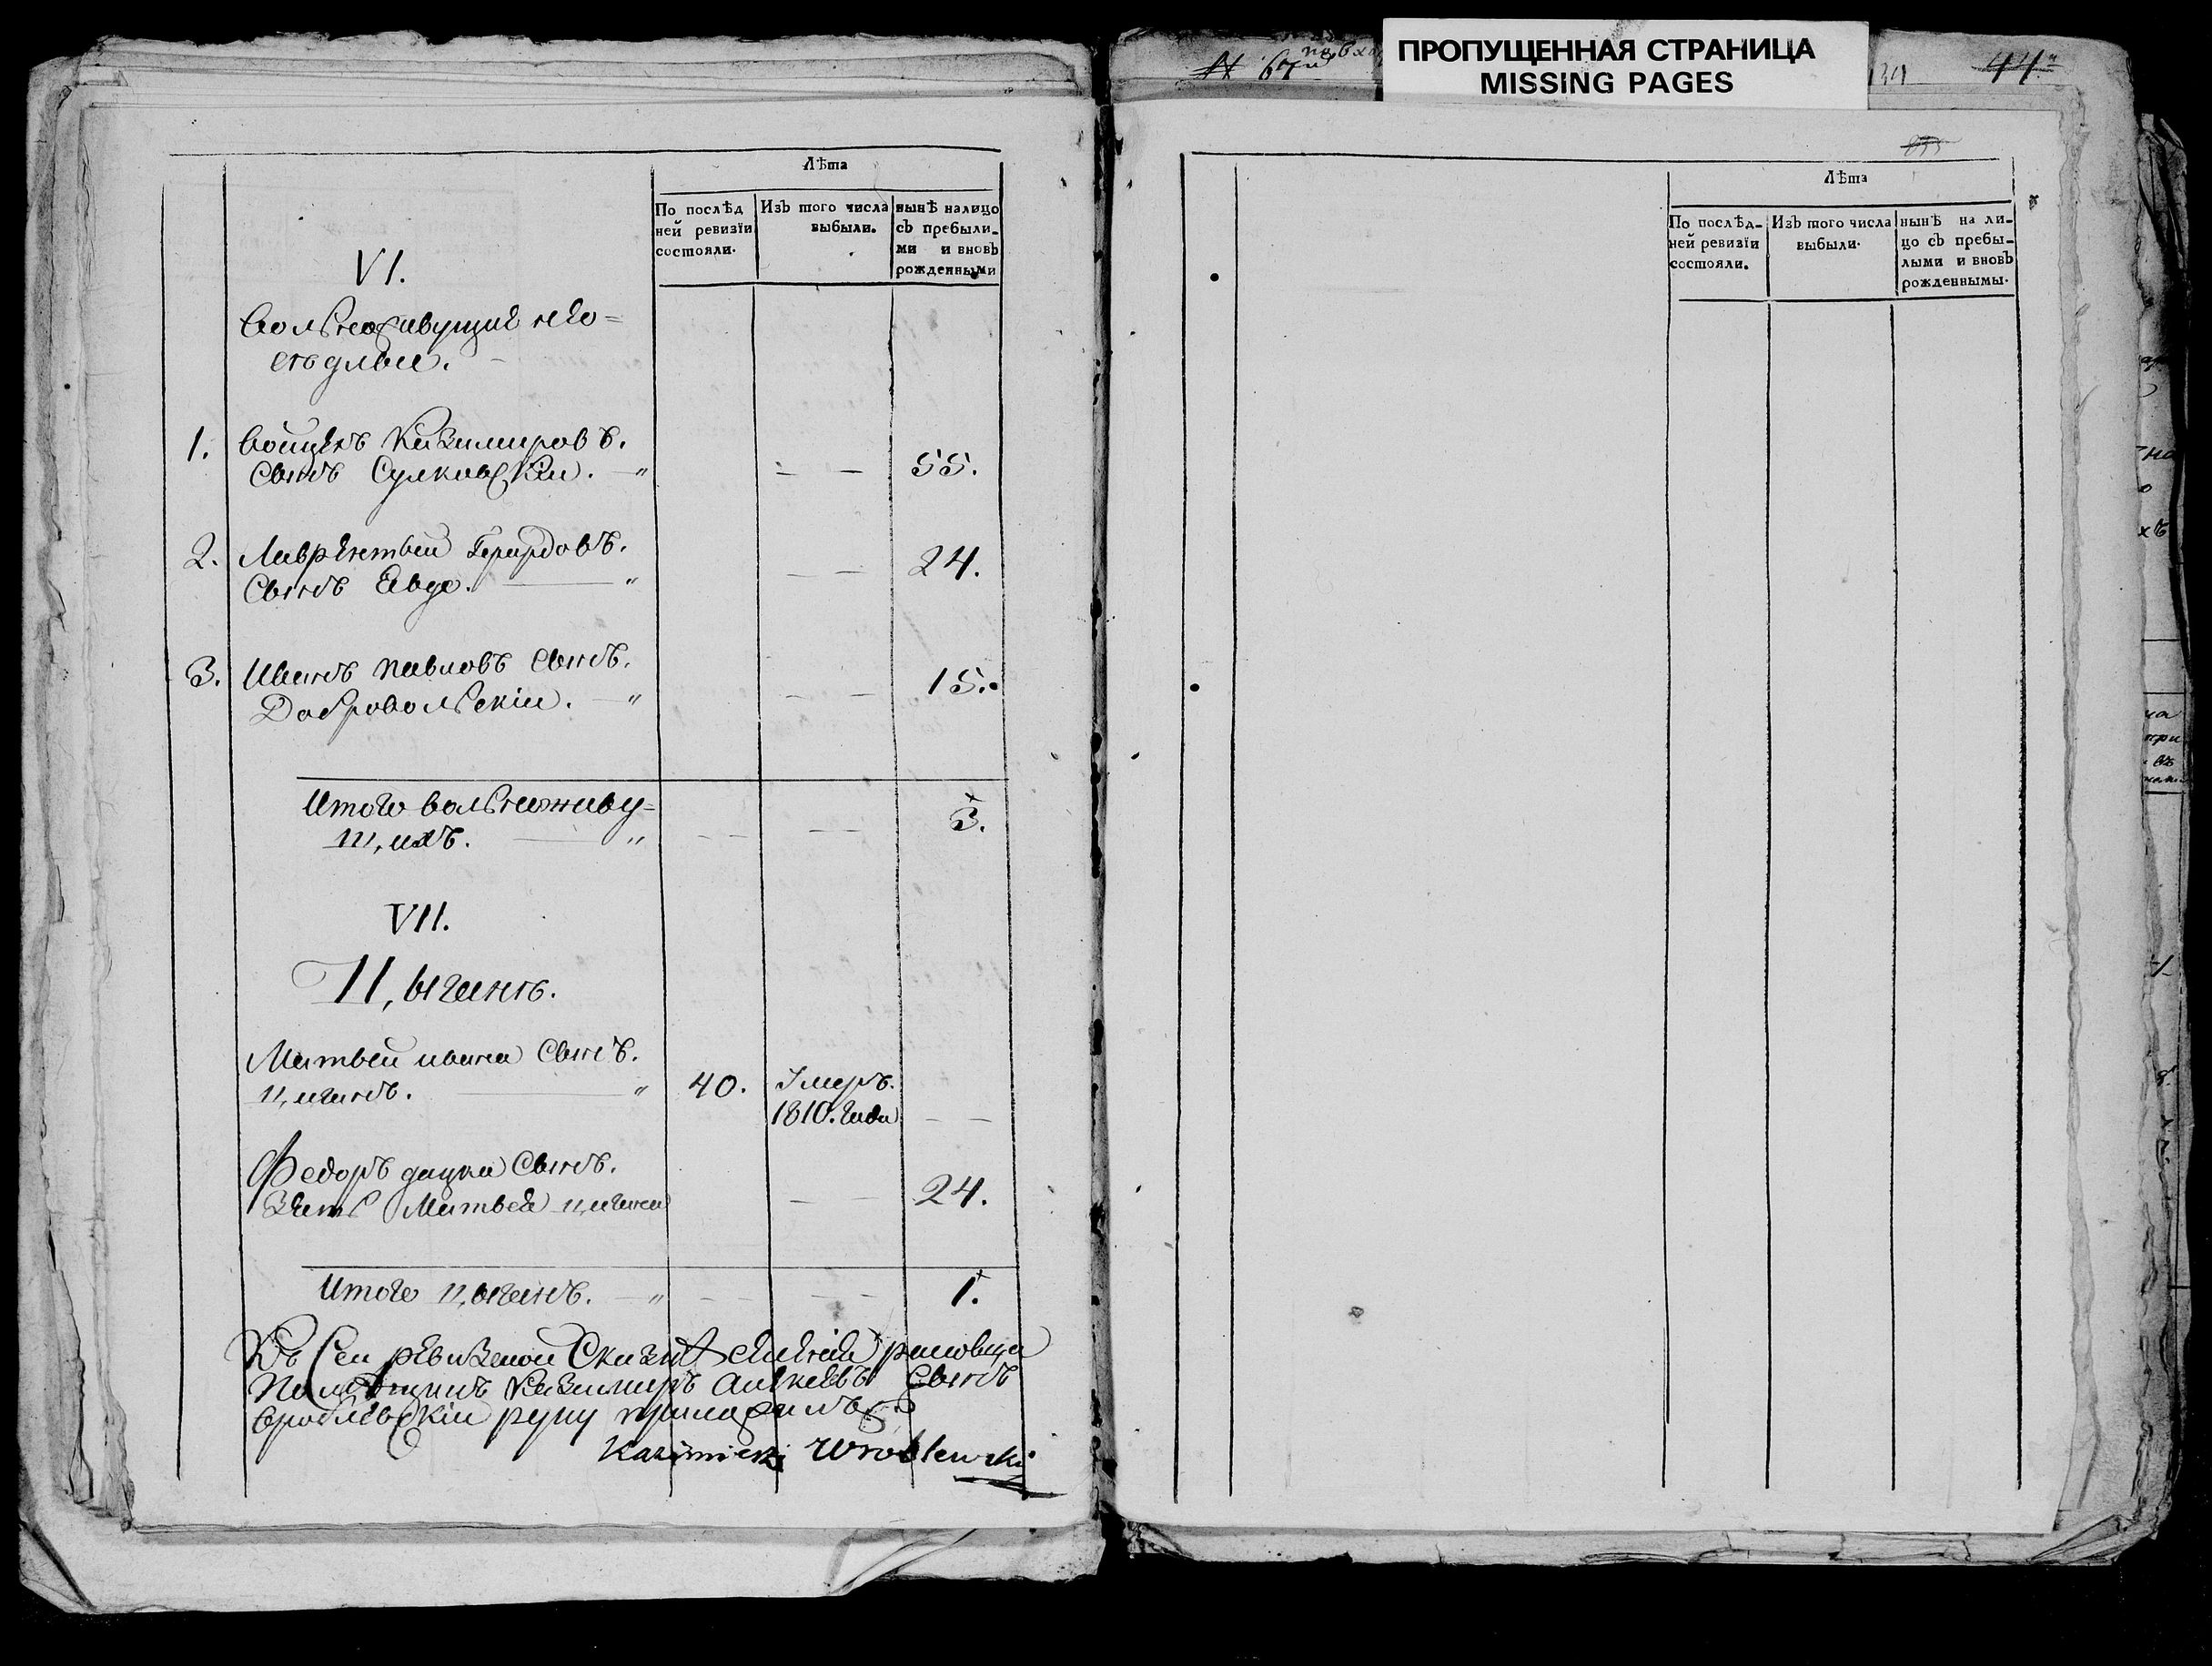 ПРОПУЩЕННАЯ СТРАНИЦА
MISSING PAGES
№ 67й
44й
Лѣта
По послѣд
ней ревизїи
состояли.
Изъ того числа
выбыли.
нынѣ налицо
съ пребыли-
ми и вновь
рожденными
VI.
Вольноживущие не о-
седлые.
1. Войцехъ Казимировъ.
Сынъ Сулковскій. — „ — — 55.
2. Лаврентей Герардовъ.
Сынъ — „ — — 24.
3. Иванъ павловъ Сынъ.
Добровольскіи. — „ — — 15.
Итого вольноживу=
щихъ. — „ — — — — 3.
VII.
Цыганъ.
Матвей ивана Сынъ.
цыганъ. — „ 40. Умеръ.
1810. года — —
Федоръ дацка Сынъ.
Зять Матвея цыгана — — 24.
Итого цыганъ. — „ — — — — 1.
Къ сей ревизкой Сказке
Помещикъ Казимиръ Сынъ
вроблевскіи руку приложилъ
Kazimierz Wroblewski
Лѣта
По послѣд-
ней ревизїи
состояли.
Изъ того числа
выбыли.
нынѣ на ли-
цо съ пребы-
лыми и вновь
рожденнымы.